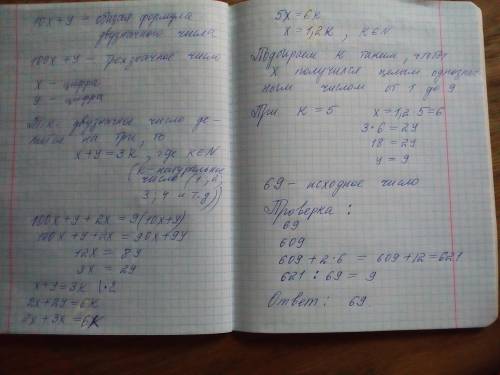 10x+y – общая формула
двузначного числа
100x+y – трехзначное число
x – цифра
y – цифра
Т.к. двузначное число де-
лится на три, то
x+y=3k, где k∈N
(k – натуральное
число (1, 2,
3, 4 и т.д))
100x+y+2x=9(10x+y)
100x+y+2x=90x+9y
12x=8y
3x=2y
x+y=3k |·2
2x+2y=6k
2x+3x=6k
5x=6k
x=1,2k, k∈N
Подбираем k таким, чтобы
x получился целым однознач
ным числом от 1 до 9
При k=5 x=1,2·5=6
3·6=2y
18=2y
y=9
69 – исходное число
Проверка:
69
609
609+2·6=609+12=621
621:69=9
Ответ: 69